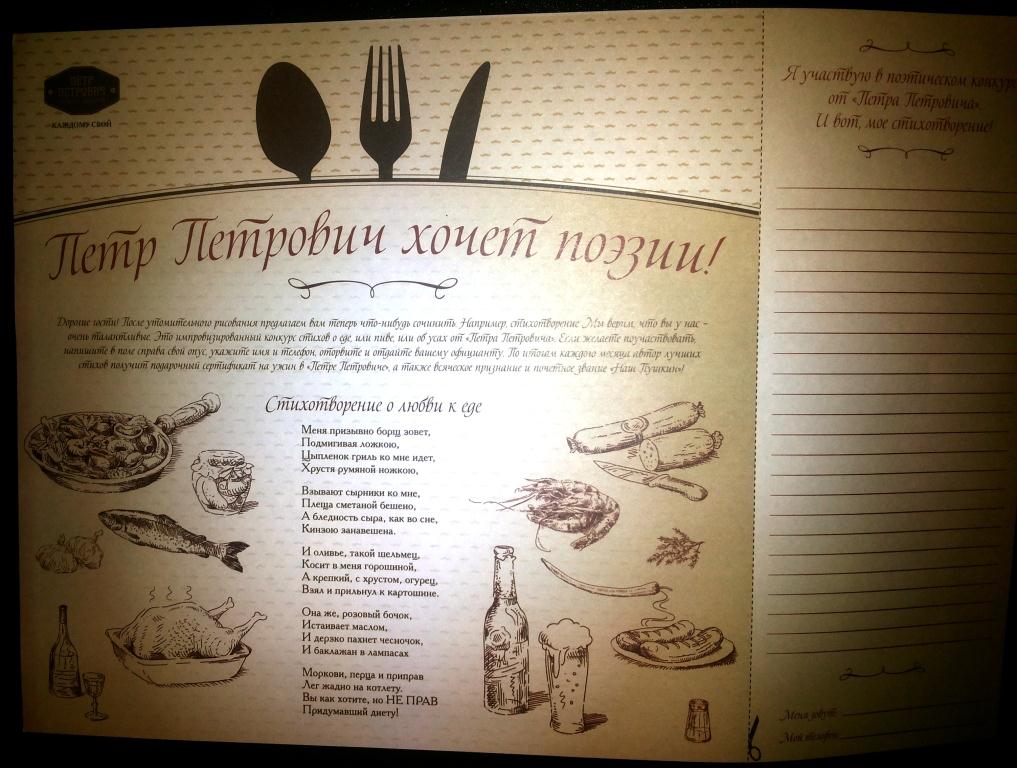 ПЕТР
ПЕТРОВИЧ
КАЖДОМУ СВОЙ
Петр Петрович хочет поэзии!
Дорогие гости! После утомительного рисования предлагаем вам теперь что-нибудь сочинить. Например, стихотворение. Мы верим, что вы у нас –
очень талантливые. Это импровизированный конкурс стихов о еде, или пиве, или об усах от «Петра Петровича». Если желаете поучаствовать,
напишите в поле справа свой опус, укажите имя и телефон, оторвите и отдайте вашему официанту. По итогам каждого месяца автор лучших
стихов получит подарочный сертификат на ужин в «Петре Петровиче», а также всяческое признание и почетное звание «Наш Пушкин»!
Стихотворение о любви к еде
Меня призывно борщ зовет,
Подмигивая ложкою,
Цыпленок гриль ко мне идет,
Хрустя румяной ножкою,
Взывают сырники ко мне,
Плеща сметаной бешено,
А бледность сыра, как во сне,
Кинзою занавешена.
И оливье, такой шельмец,
Косит в меня горошиной,
А крепкий, с хрустом, огурец,
Взял и прильнул к картошине.
Она же, розовый бочок,
Истаивает маслом,
И дерзко пахнет чесночок,
И баклажан в лампасах
Моркови, перца и приправ
Лег жадно на котлету.
Вы как хотите, но НЕ ПРАВ
Придумавший диету!
Я участвую в поэтическом конкурсе
от «Петра Петровича».
И вот, мое стихотворение!
Меня зовут:
Мой телефон: